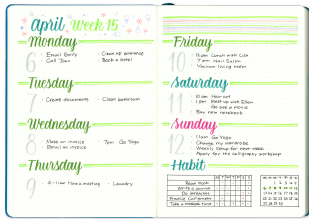 april Week 15
Monday
6
Email Emily
Clean up entrance
Call Tom
Book a hotel
Tuesday
7
Create documents
Clean bathroom
Wednesday
8
Make an invoice
7pm Go Yoga
Email an invoice
Thursday
9
Laundry
Friday
10
Lunch with Lisa
Nail Salon
Vacuum living room
Saturday
11
10am Hair cut
1pm Meet up with Ellen
Go see a movie
Buy new notebook
Sunday
12
11am Go Yoga
Change my wardrobe
Weekly Setup for next week
Apply for the calligraphy workshop
Habit
Read book
Write a journal
Practice Calligraphy